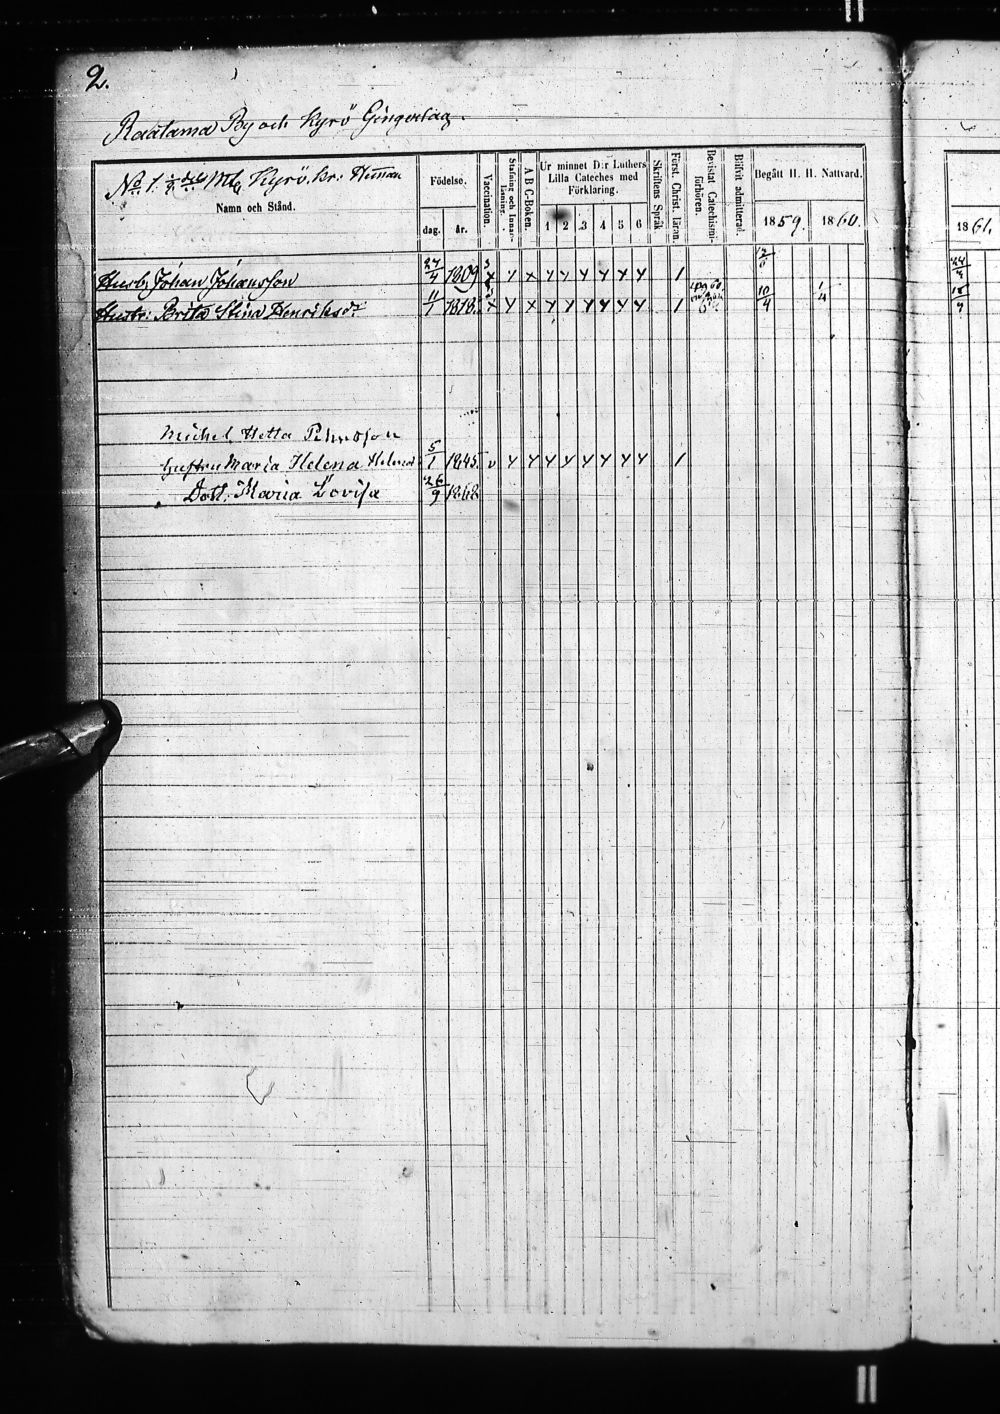 2.
Raatama By och Kyrö Gingerlag.
No 1. Kyrö. Kr: Heman
Namn och Stånd.
Födelse.
dag. år.
Vaccination.
Stafning och Innanläsning.
A B C-Boken.
Ur minnet D:r Luthers Lilla Cateches med Förklaring.
1 2 3 4 5 6
Skriftens Språk
Först. Christ. läran.
Bevistat Catechismiförhören.
Blifvit admitterad.
Begått H. H. Nattvard.
1859. 1860.
1861.
Husb. Johan Johansson 27/4 1809 x y x y y y y y y 1 24/
Hustr: Brita Stina Henriksdr 11/1 1818. x y x y y y y y y 1 10/4 1/4
Michel Hetta Pehrsson
Hustru Maria Helena 5/1 1845. v y y y y y y y y 1
Dott. Maria Lovisa 26/9 1868